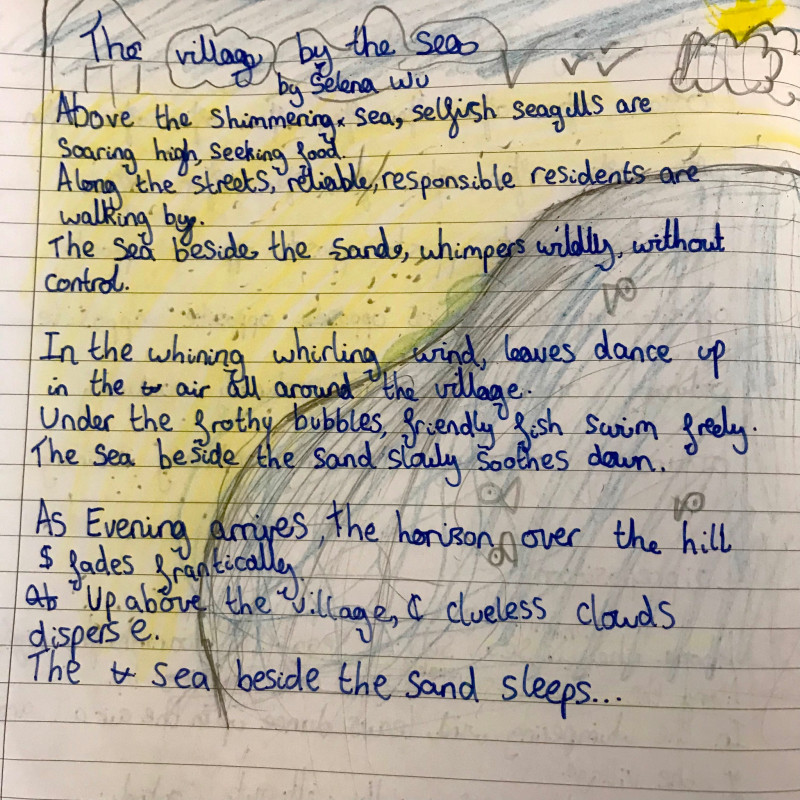 The village by the sea
by Selena Wu
Above the shimmering sea, selfish seagulls are
soaring high, seeking food.
Along the streets, reliable, responsible residents are
walking by.
The sea beside the sands, whimpers wildly, without
control.
In the whining whirling wind, leaves dance up
in the air all around the village.
Under the frothy bubbles, friendly fish swim freely.
The sea beside the sand slowly soothes down.
As Evening arrives, the horison over the hill
fades frantically.
Up above the village, clueless clouds
disperse.
The sea beside the sand sleeps...